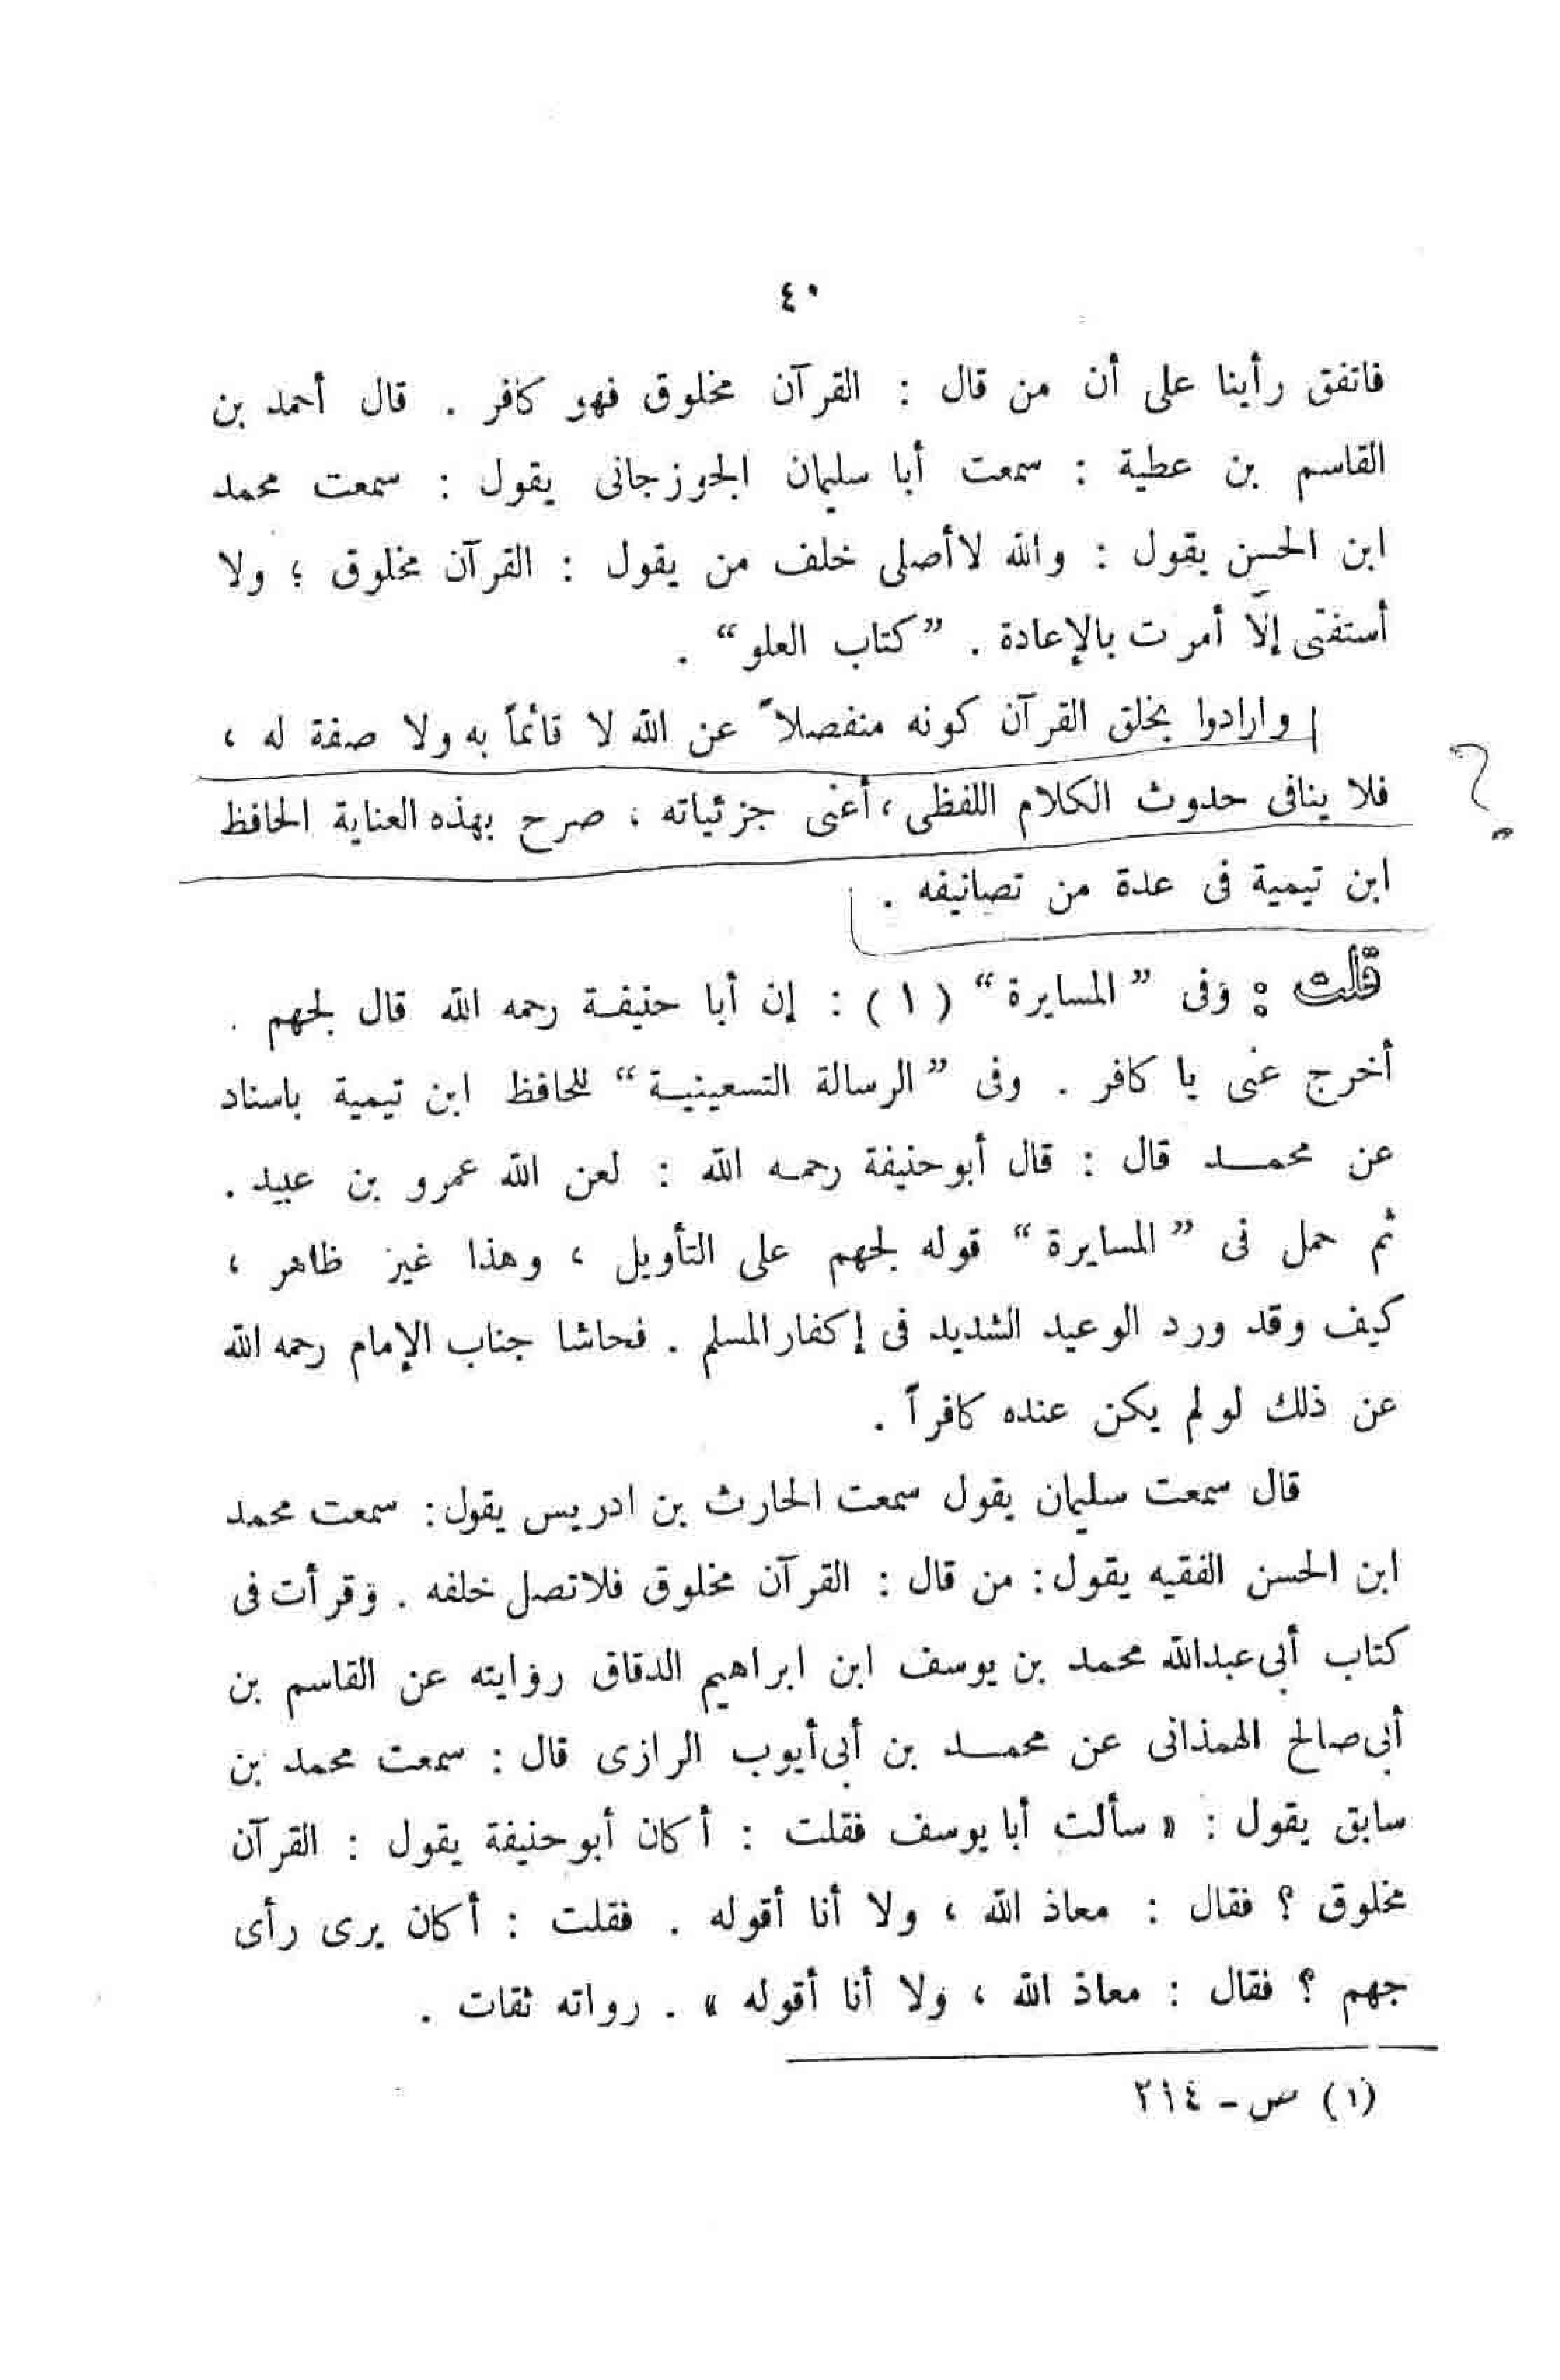 ٤٠
فاتفق رأينا على أن من قال : القرآن مخلوق فهو كافر . قال أحمد بن
القاسم بن عطية : سمعت أبا سليمان الجوزجانى يقول : سمعت محمد
ابن الحسن يقول : والله لاأصلى خلف من يقول : القرآن مخلوق ؛ ولا
أستفتى إلّا أمرت بالإعادة . ”كتاب العلو“ .
وارادوا بخلق القرآن كونه منفصلاً عن الله لا قائماً به ولا صفة له ،
فلا ينافى حدوث الكلام اللفظى ، أعنى جزئياته ، صرح بهذه العناية الحافظ
ابن تيمية فى عدة من تصانيفه .
قلت : وفى ”المسايرة“ (١) : إن أبا حنيفة رحمه الله قال لجهم .
أخرج عنى يا كافر . وفى ”الرسالة التسعينية“ للحافظ ابن تيمية باسناد
عن محمد قال : قال أبوحنيفة رحمه الله : لعن الله عمرو بن عبيد .
ثم حمل فى ”المسايرة“ قوله لجهم على التأويل ، وهذا غير ظاهر ،
كيف وقد ورد الوعيد الشديد فى إكفار المسلم . فحاشا جناب الإمام رحمه الله
عن ذلك لو لم يكن عنده كافراً .
قال سمعت سليمان يقول سمعت الحارث بن ادريس يقول : سمعت محمد
ابن الحسن الفقيه يقول : من قال : القرآن مخلوق فلاتصل خلفه . وقرأت فى
كتاب أبى عبدالله محمد بن يوسف ابن ابراهيم الدقاق روايته عن القاسم بن
أبى صالح الهمذانى عن محمد بن أبى أيوب الرازى قال : سمعت محمد بن
سابق يقول : « سألت أبا يوسف فقلت : أكان أبوحنيفة يقول : القرآن
مخلوق ؟ فقال : معاذ الله ، ولا أنا أقوله . فقلت : أكان يرى رأى
جهم ؟ فقال : معاذ الله ، ولا أنا أقوله » . رواته ثقات .
(١) ص - ٢١٤